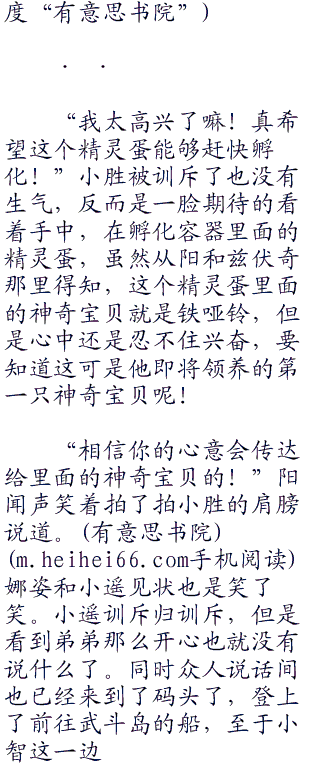 度“有意思书院”)
. .
“我太高兴了嘛！真希
望这个精灵蛋能够赶快孵
化！”小胜被训斥了也没有
生气，反而是一脸期待的看
着手中，在孵化容器里面的
精灵蛋，虽然从阳和兹伏奇
那里得知，这个精灵蛋里面
的神奇宝贝就是铁哑铃，但
是心中还是忍不住兴奋，要
知道这可是他即将领养的第
一只神奇宝贝呢！
“相信你的心意会传达
给里面的神奇宝贝的！”阳
闻声笑着拍了拍小胜的肩膀
说道。(有意思书院)
(m.heihei66.com手机阅读)
娜姿和小遥见状也是笑了
笑。小遥训斥归训斥，但是
看到弟弟那么开心也就没有
说什么了。同时众人说话间
也已经来到了码头了，登上
了前往武斗岛的船，至于小
智这一边